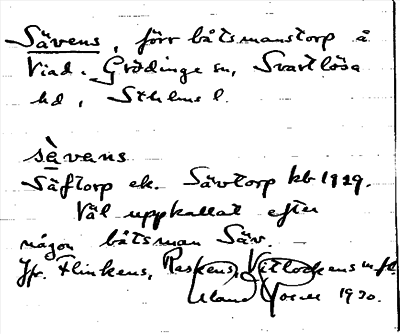 Sävens, förr båtsmanstorp å
Viad. Grödinge sn, Svartlösa
hd, Sthlms l.
sä̀vəns
Säftorp ek. Sävtorp kb 1929.
Väl uppkallat efter
någon båtsman Säv.
Jfr. Flinkens, Raskens, Vitlockens m.fl.
1930.